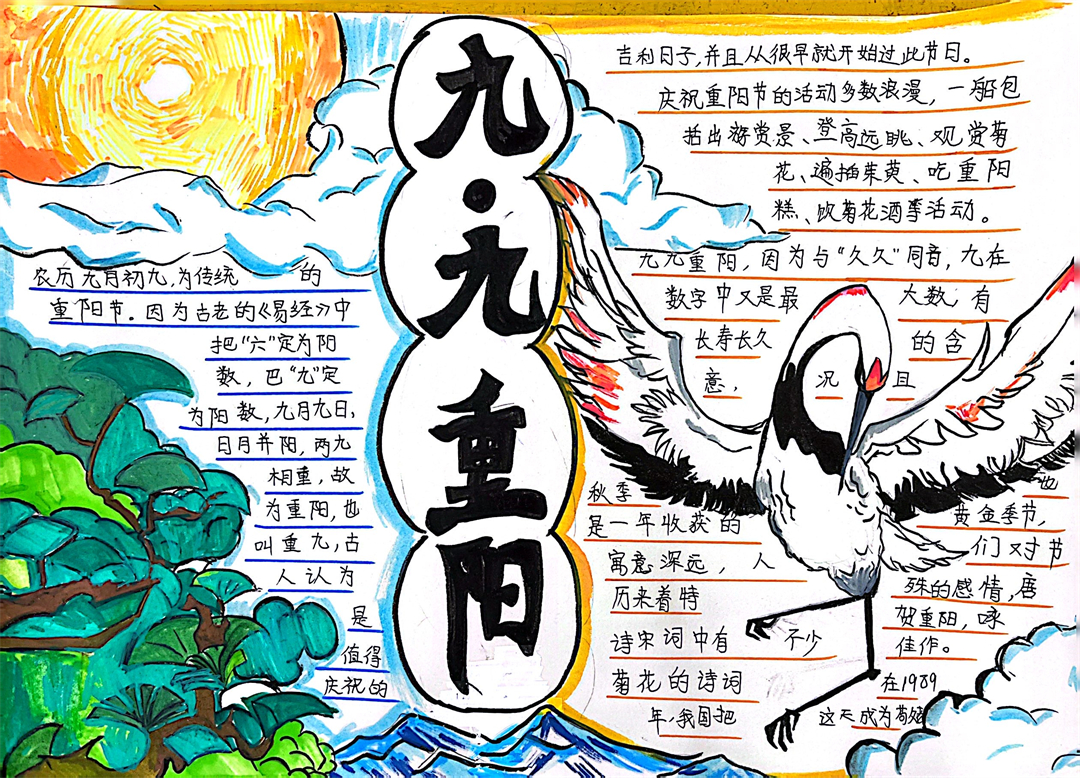 九·九重阳
农历九月初九,为传统 的
重阳节。因为古老的《易经》中
把“六”定为阳
数,巴“九”定
为阳数,九月九日,
日月并阳,两九
相重,故
为重阳,也
叫重九,古
人认为
是
值得
庆祝的
吉利日子,并且从很早就开始过此节日。
庆祝重阳节的活动多数浪漫,一船包
拍出游赏景、登高远眺、观赏菊
花、遍插茱萸、吃重阳
糕、饮菊花酒等活动。
九九重阳,因为与“久久”同音,九在
数字中又是最 大数,有
长寿长久 的含
意, 况 且
秋季 也
是一年收获的 黄金季节,
寓意深远,人 们对节
历来着特 殊的感情,唐
诗宋词中有 不少 贺重阳,咏
菊花的诗词 佳作。
在1989
年,我国把 这天成为